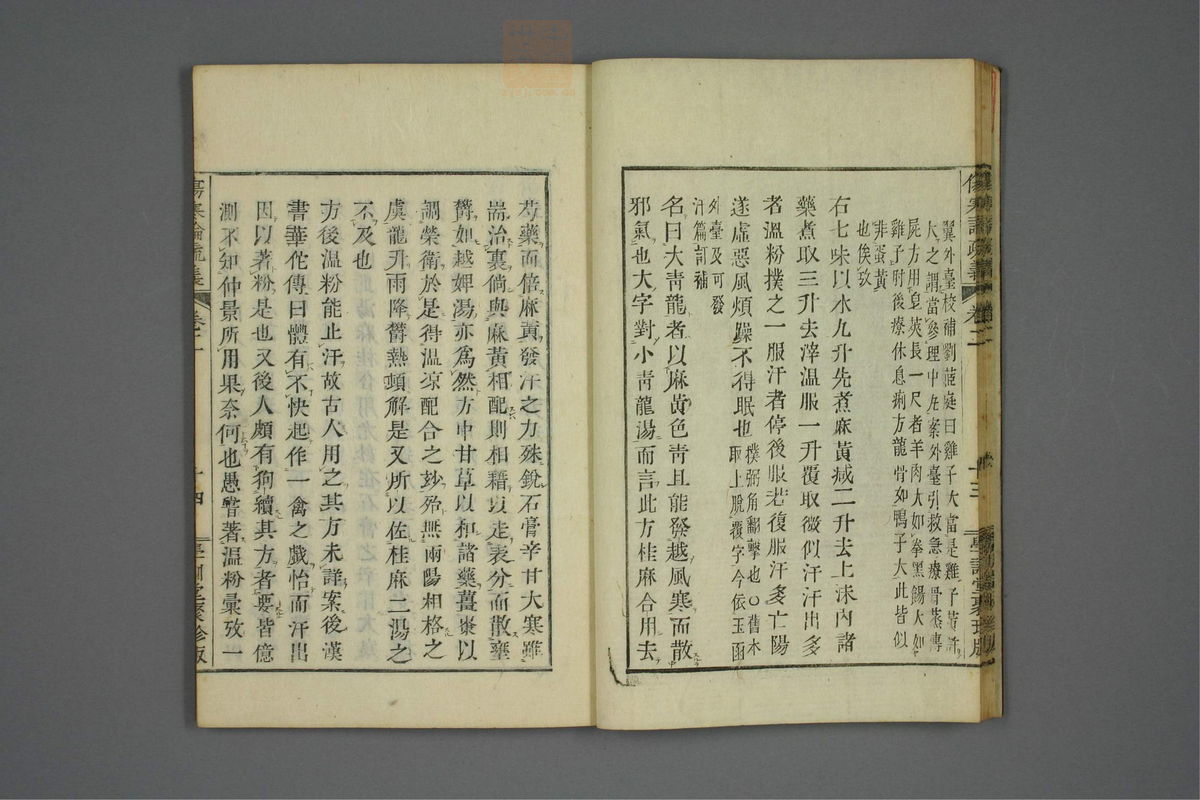 翼外臺校補劉蓝庭曰雞子大當是雞子黃許
大之謂當參理中左案外臺引救急療骨蒸傳
屍方用皂莢長一尺者羊肉大如拳黑餳大如
雞子肘後療休息痢方龍骨如鴨子大此皆似
非蛋黃
也俟攷
右七味以水九升先煮麻黃減二升去上沫內諸
藥煮取三升去滓溫服一升覆取微似汗汗出多
者溫粉撲之一服汗者停後服若復服汗多亡陽
遂虛惡風煩躁不得眠也撲弼角翻擊也○舊本
取上脫覆字今依玉函
外臺及可發
汗篇訂補
名曰大青龍者以麻黃色青且能發越風寒而散
邪氣也大字對小青龍湯而言此方桂麻合用去
傷寒論疏義 卷二 十三 學訓堂聚珍版
芍藥而倍麻黃發汗之力殊銳石膏辛甘大寒雖
耑治裏倘與麻黃相配則相藉以走表分而散壅
欝如越婢湯亦爲然方中甘草以和諸藥薑棗以
調榮衛於是得溫凉配合之玅殆無兩陽相格之
虞龍升雨降欝熱頓解是又所以佐桂麻二湯之
不及也
方後溫粉能止汗故古人用之其方未詳案後漢
書華佗傳曰體有不快起作一禽之戲怡而汗出
因以著粉是也又後人頗有狗續其方者要皆億
測不知仲景所用果奈何也愚嘗著溫粉彙攷一
傷寒論疏義 卷二 十四 學訓堂聚珍版